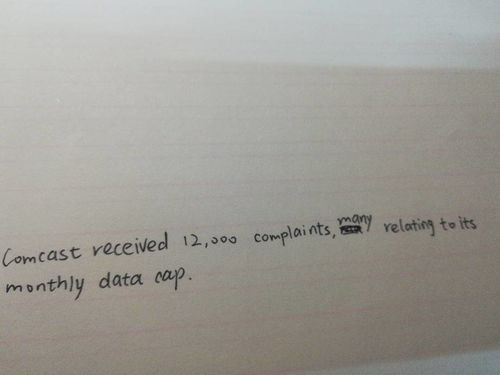 Comcast received 12,000 complaints, many relating to its
monthly data cap.